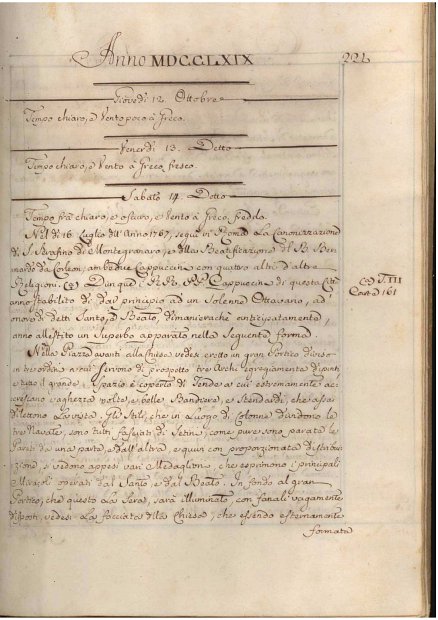 Anno MDCCLXIX
221
Giovedì 12. Ottobre
Tempo chiaro, e Vento poco à Greco.
Venerdì 13. Detto
Tempo chiaro, e Vento à Greco fresco.
Sabato 14. Detto
Tempo frà chiaro, e oscuro, e Vento à Greco freddo.
Nel dì 16 Luglio dell'Anno 1767, seguì in Roma la Canonizzazione
di S. Serafino de Montegranaro, e della Beatificazione del B. Ber
nardo da Corleon, ambedue Cappuccini con quattro altri d'altre
Religioni. Dunque i Cappuccini di questa Città
anno stabilito di dar principio ad un Solenne Ottavario, ad o
nore di detti Santo, e Beato, dimanierache anticipatamente
anno allestito un Superbo apparato nella Seguente forma.
Cod VIII
Carta 161
Nella Piazza avanti alla Chiesa vedesi eretto un gran Portico diviso
in tre ordini a cui servono di prospetto tre Archi egregiamente dipinti
e tutto il grande Spazio è coperto di Tende a cui estremamente ac
crescano vaghezza molte, e belle Bandiere, e Stendardi, che assai
dilettono la vista. Gli Stili, che in Luogo di Colonne dividono le
tre Navate, sono tutti fasciati di Setini, come pure sono parate le
Pareti da una parte, e dall'altra, e quivi con proporzionata distribu
zione, si vedono appesi vari Medaglioni, che esprimono i principali
Miracoli operati dal Santo, e dal Beato. In fondo al gran
Portico, che questa Sera, sarà illuminato, con fanali vagamente
disposti, vedesi la facciata della Chiesa, che essendo esternamente
formata